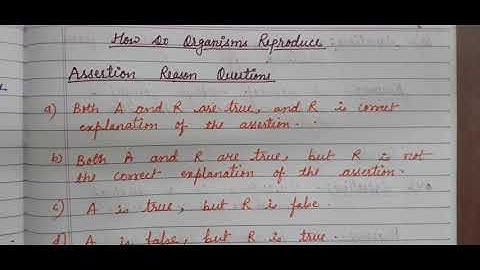 How Do Organisms Reproduce
Assertion Reason Questions
a) Both A and R are true, and R is correct
explanation of the assertion.
b) Both A and R are true, but R is not
the correct explanation of the assertion.
c) A is true, but R is false.
d) A is false, but R is true.